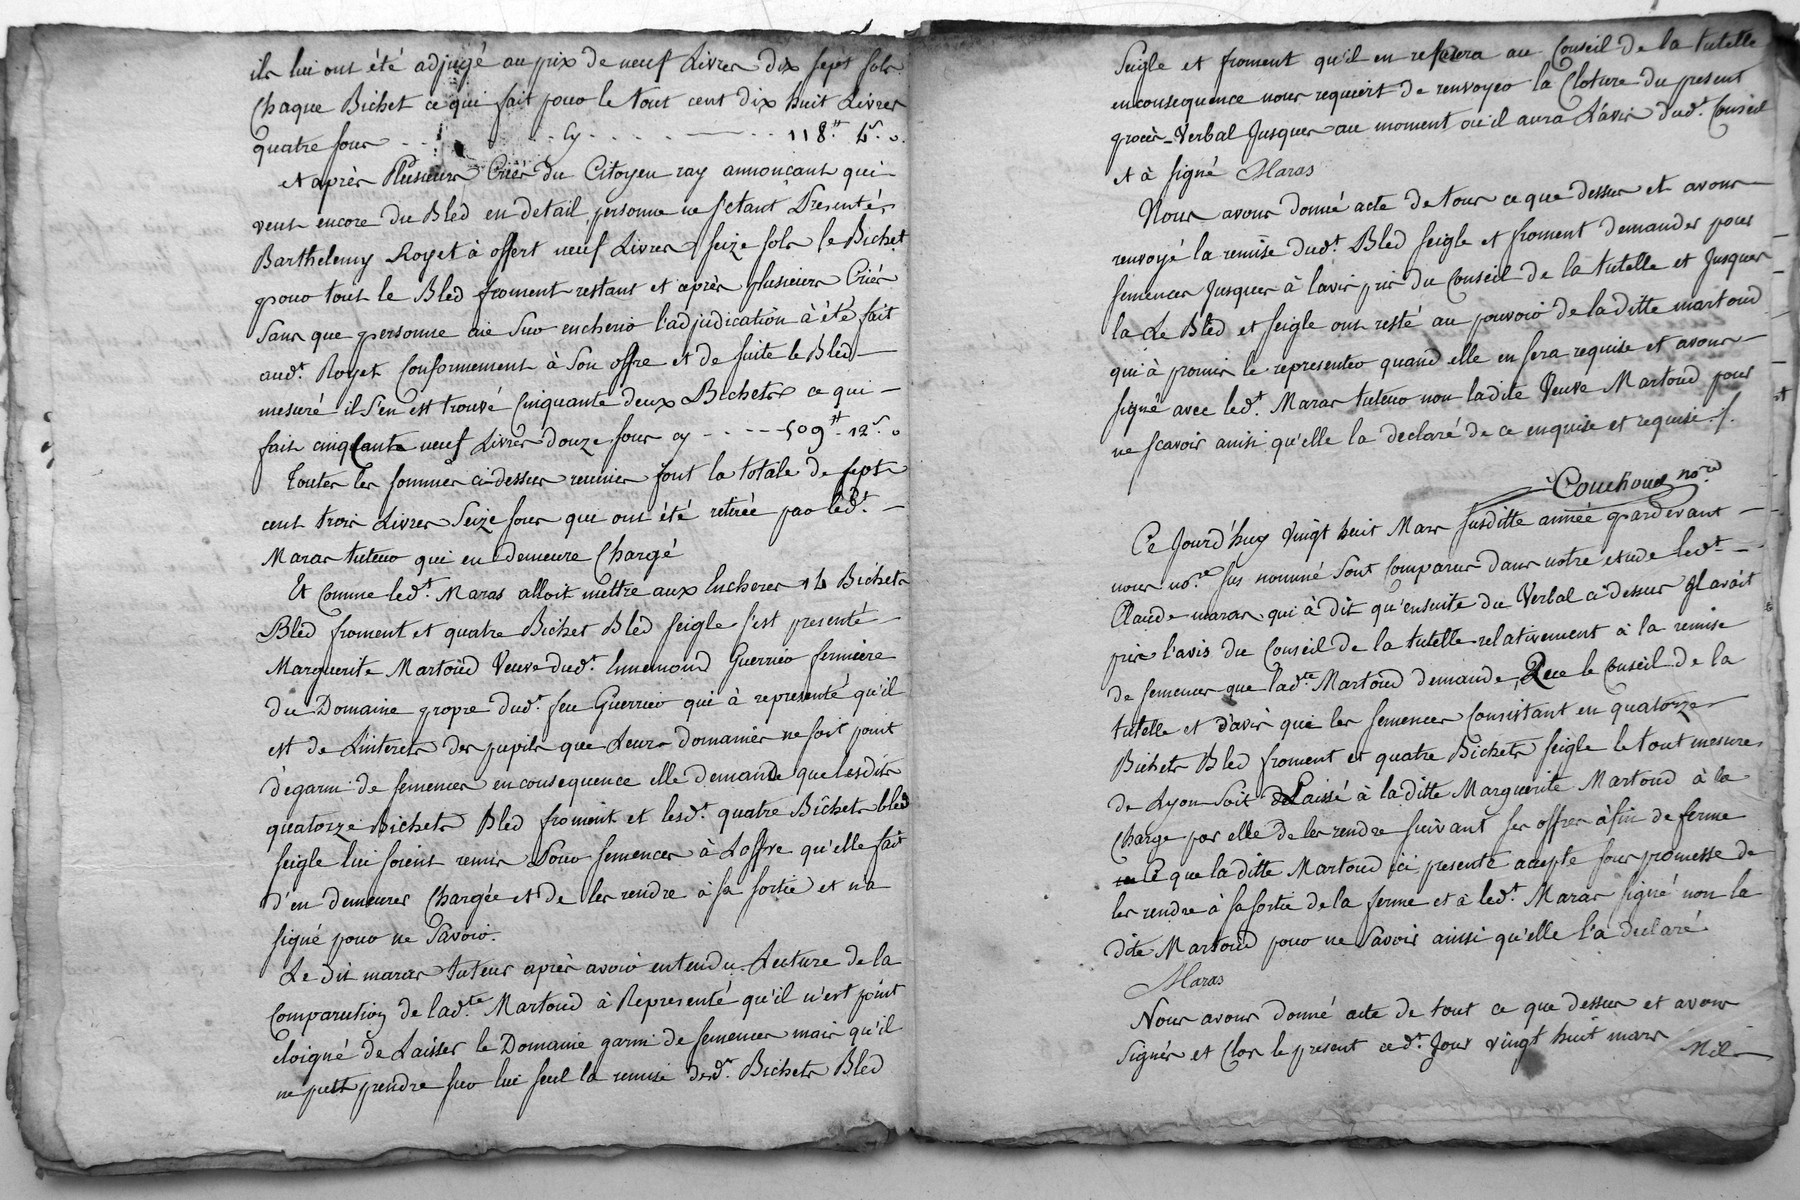 ils lui ont été adjugé au prix de neuf Livres dix sept sols
Chaque Bichet ce qui fait pour le tout cent dix huit Livres
quatre sous - - - - - Cy - - - - - - - 118.# 4.s 0.
et après Plusieurs Criés du Citoyen ray annonçant qui
veut encore du Bled en detail personne ne s'etant Presentés
Barthelemy Royet à offert neuf Livres seize sols le Bichet
pour tout le Bled froment restant et après plusieurs Criés
sans que personne aie sur encheris l'adjudication à été fait
aud.t Royet Conformement à Son offre et de suite le Bled
mesuré il s'en est trouvé Cinquante deux Bichets ce qui
fait cinq Cents neuf Livres douze sous cy - - - - 509.# 12.s 0
Toutes les sommes ci-dessus reunies font la totale de sept
cent trois Livres Seize sous qui ont été retirée par led.t
Maras tuteur qui en demeure Chargé
Et comme led.t Maras alloit mettre aux Encheres 14 Bichets
Bled froment et quatre Bichet Bled seigle s'est presenté
Marguerite Martoud Veuve dud.t Ennemond Guerrier fermiere
du Domaine propre dud.t feu Guerrier qui à representé qu'il
est de Linterets des pupils que Leurs domaines ne soit point
dégarni de semences en consequence elle demande que lesdits
quatorze Bichets Bled froment et lesd.t quatre Bichets bled
seigle lui soient remis Pour semences à Loffre qu'elle fait
d'en demeurer Chargée et de les rendre à sa sortie et n'a
signé pour ne Savoir.
Le dit maras tuteur après avoir entendu Lecture de la
Comparution de lad.te Martoud à Representé qu'il n'est point
eloigné de Laisser le Domaine garni de semences mais qu'il
ne peut prendre sur lui seul la remise desd.ts Bichets Bled
Seigle et froment qu'il en referera au Conseil de la tutelle
en consequence nous requiert de renvoyer la Cloture du present
procès-Verbal Jusques au moment ou il aura L'avis dud.t Conseil
et à signé Maras
Nous avons donné acte de tous ce que dessus et avons
renvoyé la remise dud.t Bled seigle et froment demandés pour
semences Jusques à lavis pris du Conseil de la tutelle et Jusques
la Le Bled et seigle ont resté au pouvoir de laditte martoud
qui à promis le representer quand elle en sera requise et avons
signé avec led.t Maras tuteur non ladite Veuve Martoud pour
ne scavoir ainsi qu'elle la declaré de ce enquise et requise ./.
Couchoud no.re
Ce Jourd'huy Vingt huit Mars susditte année pardevant
nous no.re sus nommé sont Comparus dans notre etude led.t
Claude maras qui à dit qu'ensuite du Verbal ci dessus Il avoit
pris l'avis du Conseil de la tutelle relativement à la remise
de semences que lad.te Martoud demande, Que le Conseil de la
tutelle et d'avis que les semences Consistant en quatorze
Bichets Bled froment et quatre Bichets seigle le tout mesure
de Lyon soit deLaissé à laditte Marguerite Martoud à la
Charge par elle de les rendre suivant ses offres à fin de ferme
ce que la ditte Martoud ici presente acepte sous promesse de
les rendre à sa sortie de la ferme et à led.t Maras signé non la
dite Martoud pour ne Savoir ainsi qu'elle l'a declaré.
Maras
Nous avons donné acte de tout ce que dessus et avons
signés et Clos le present ced.t Jour vingt huit mars Mil